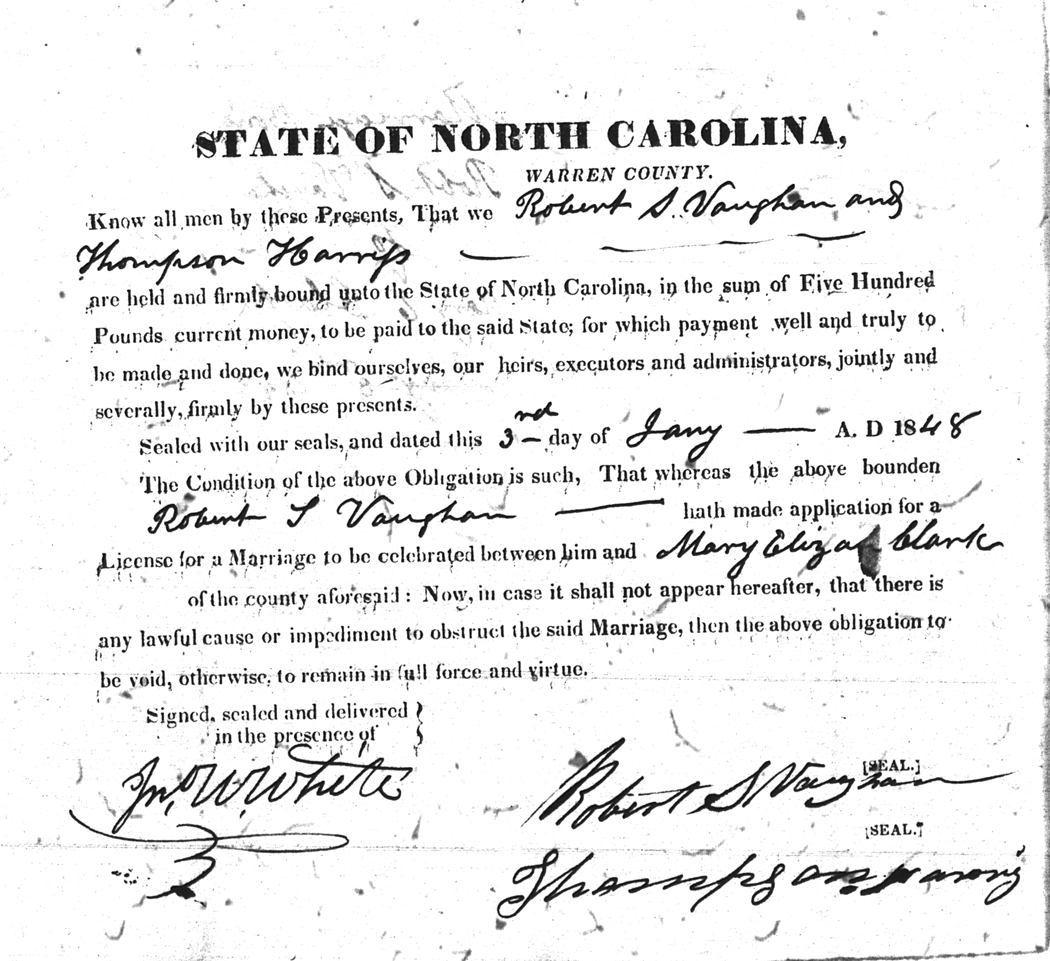 STATE OF NORTH CAROLINA,
WARREN COUNTY.
Know all men by these Presents, That we Robert S. Vaughan and
Thompson Harriss
are held and firmly bound unto the State of North Carolina, in the sum of Five Hundred
Pounds current money, to be paid to the said State; for which payment well and truly to
be made and done, we bind ourselves, our heirs, executors and administrators, jointly and
severally, firmly by these presents.
Sealed with our seals, and dated this 3rd day of Jany A. D 1848
The Condition of the above Obligation is such, That whereas the above bounden
Robert S Vaughan hath made application for a
License for a Marriage to be celebrated between him and Mary Eliza Clark
of the county aforesaid: Now, in case it shall not appear hereafter, that there is
any lawful cause or impediment to obstruct the said Marriage, then the above obligation to
be void, otherwise, to remain in full force and virtue.
Signed, sealed and delivered
in the presence of
Jno. W. White
[SEAL.]
Robert S Vaughan
[SEAL.]
Thompson Harris